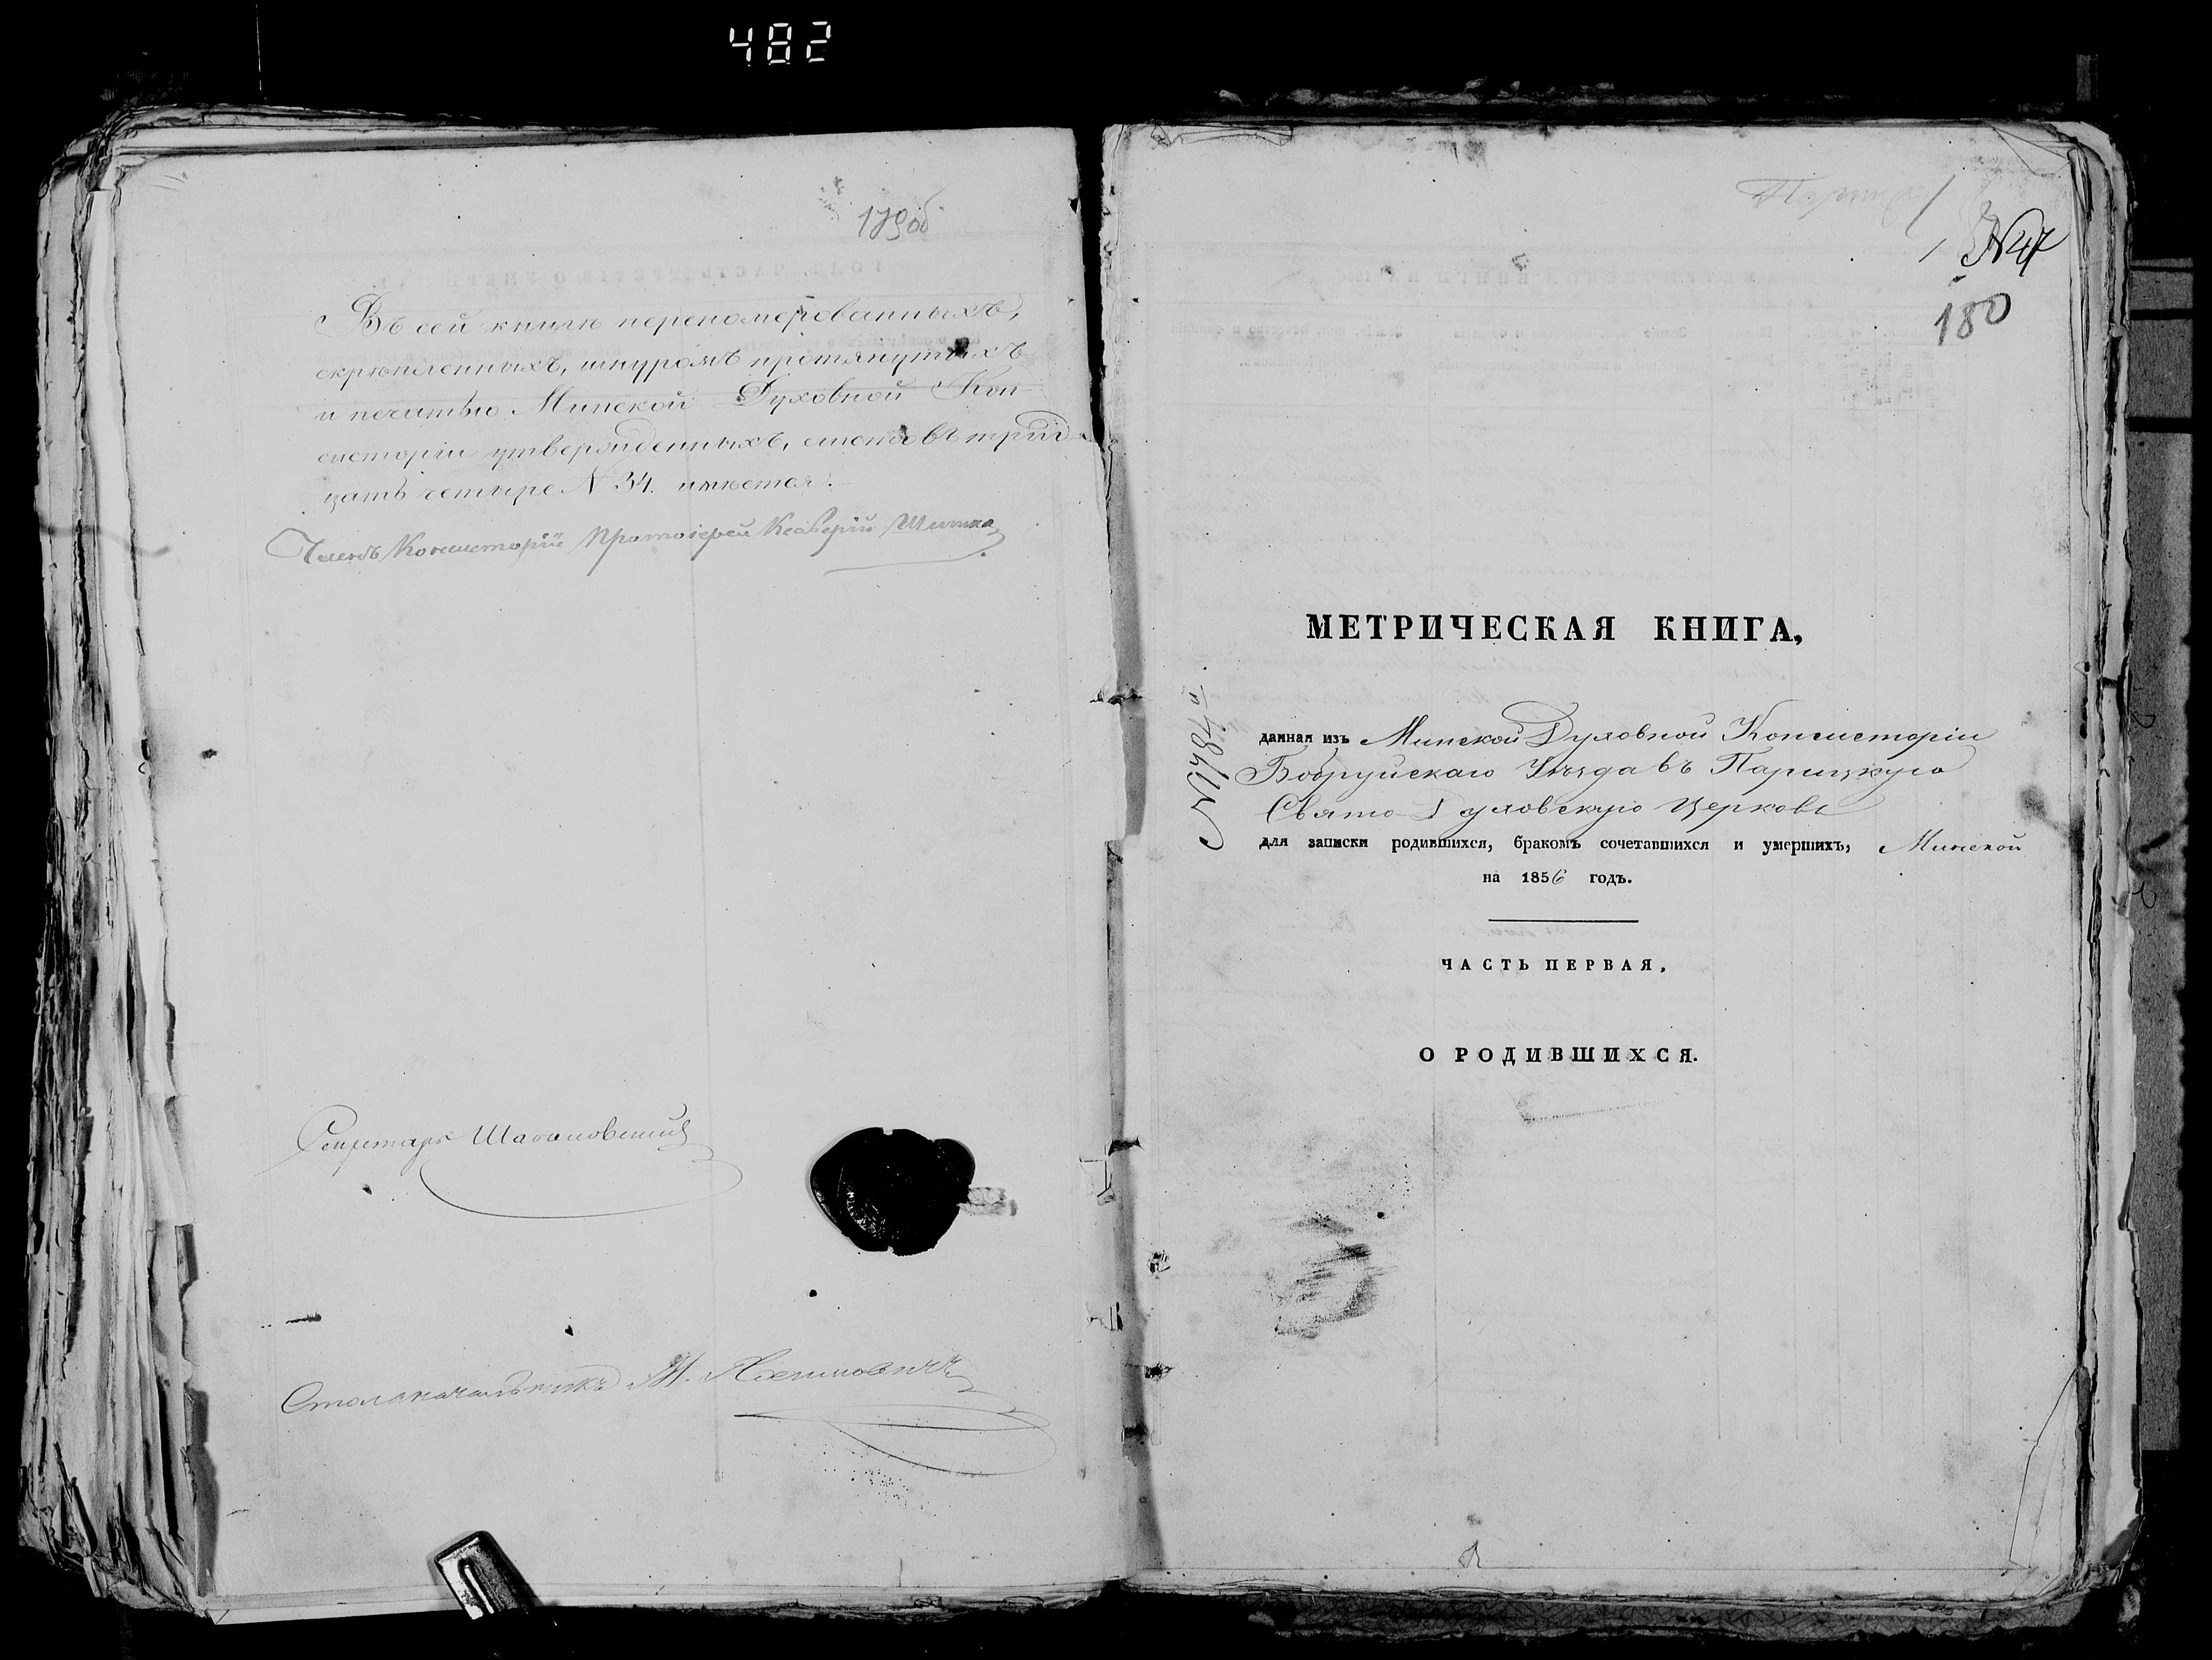 482
179об
Въ сей книгѣ перепомерованныхъ,
скрѣпленныхъ, шнуромъ протянутыхъ
и печатью Минской Духовной Кон-
систоріи утвержденныхъ, листовъ трид-
цать четыре N 34. имѣется.
Членъ Консисторіи Протоіерей Ксаверій
Секретарь
Столоначальникъ М.
N 47
180
МЕТРИЧЕСКАЯ КНИГА,
N 1784й
данная изъ Минской Духовной Консисторіи
Бобруйскаго Уѣзда въ Парицкую
Свято-Духовскую церковь
для записки родившихся, бракомъ сочетавшихся и умершихъ, Минской
на 1856 годъ.
ЧАСТЬ ПЕРВАЯ,
О РОДИВШИХСЯ.